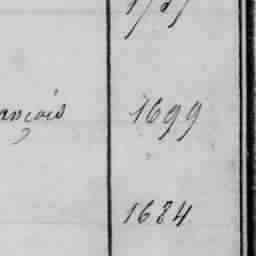 ançois 1699
1684